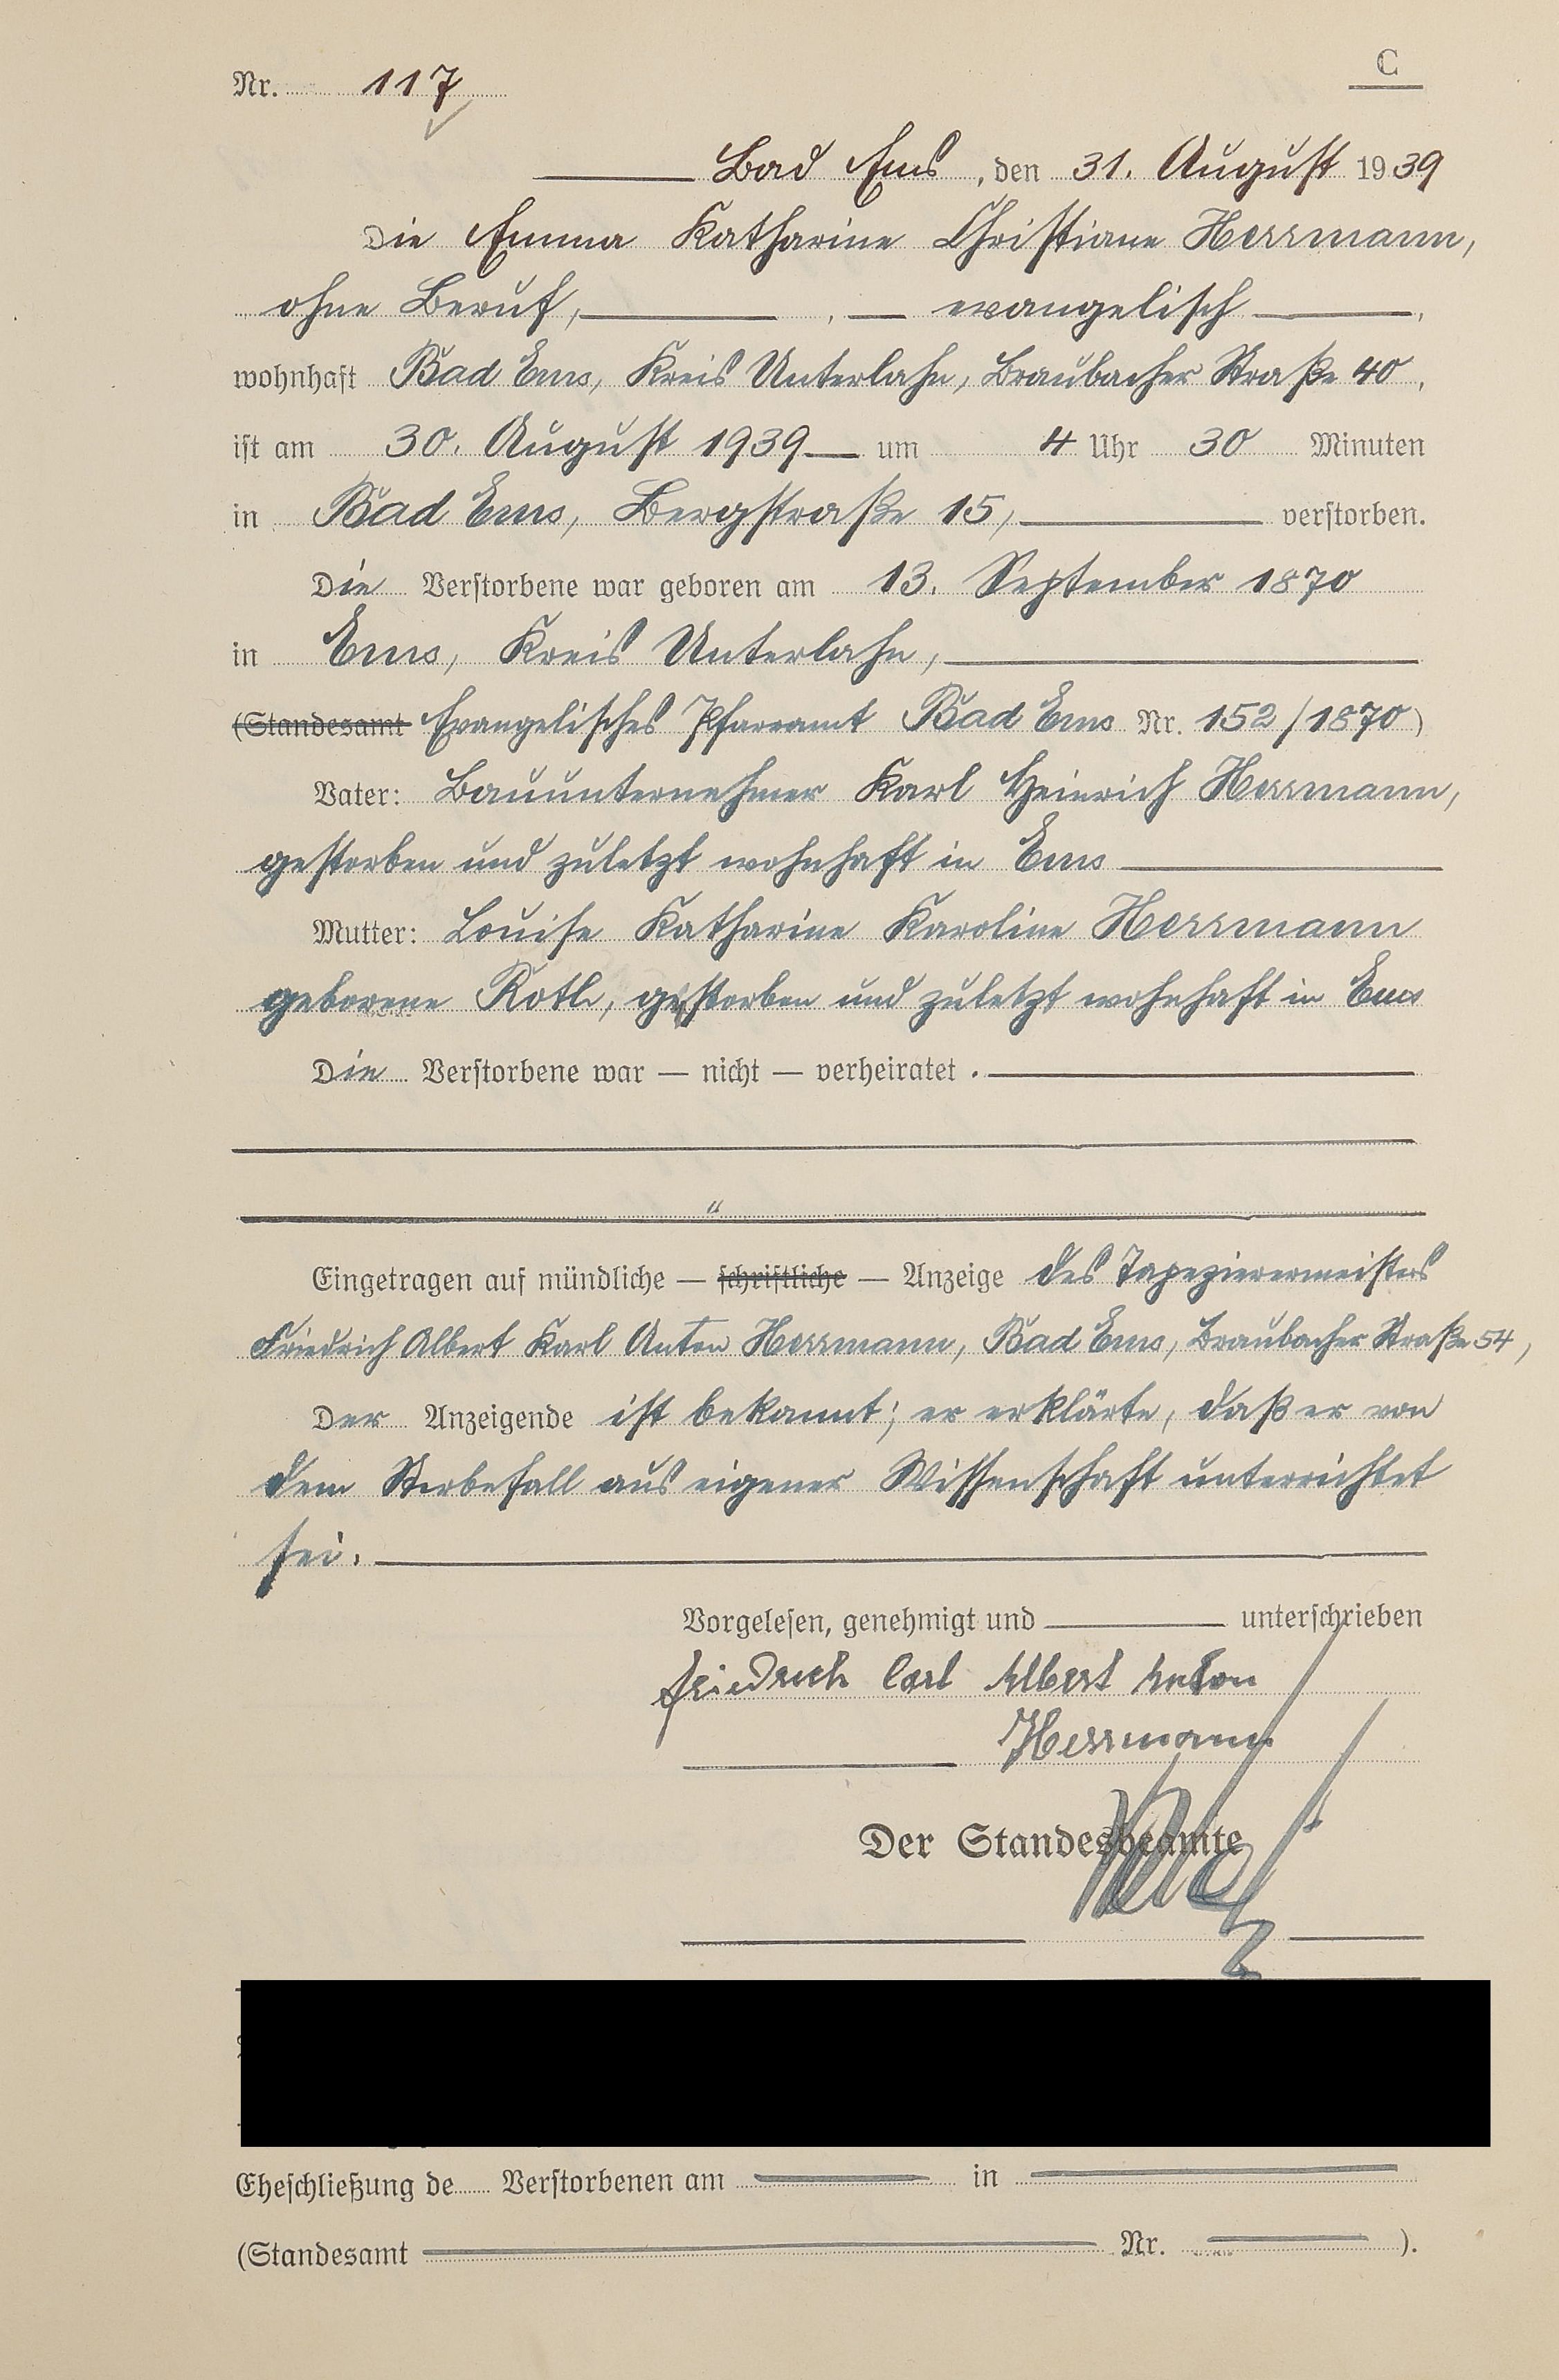 Nr. 117
C
Bad Ems, den 31. August 1939
Die Emma Katharine Christiane Herrmann,
ohne Beruf, , evangelisch ,
wohnhaft Bad Ems, Kreis Unterlahn, Braubacher Straße 40,
ist am 30. August 1939 um 4 Uhr 30 Minuten
in Bad Ems, Bergstraße 15, verstorben.
Die Verstorbene war geboren am 13. September 1870
in Ems, Kreis Unterlahn,
(Standesamt Evangelisches Pfarramt Bad Ems Nr. 152/1870)
Vater: Bauunternehmer Karl Heinrich Herrmann,
gestorben und zuletzt wohnhaft in Ems
Mutter: Louise Katharine Karoline Herrmann
geborene Roth, gestorben und zuletzt wohnhaft in Ems
Die Verstorbene war — nicht — verheiratet.
"
Eingetragen auf mündliche — schriftliche — Anzeige des Tapezierermeisters
Friedrich Albert Karl Anton Herrmann, Bad Ems, Braubacher Straße 54,
Der Anzeigende ist bekannt; er erklärte, daß er von
dem Sterbefall aus eigener Wissenschaft unterrichtet
sei.
Vorgelesen, genehmigt und unterschrieben
Friedrich Carl Albert Anton
Herrmann
Der Standesbeamte
Eheschließung de Verstorbenen am in
(Standesamt Nr. ).